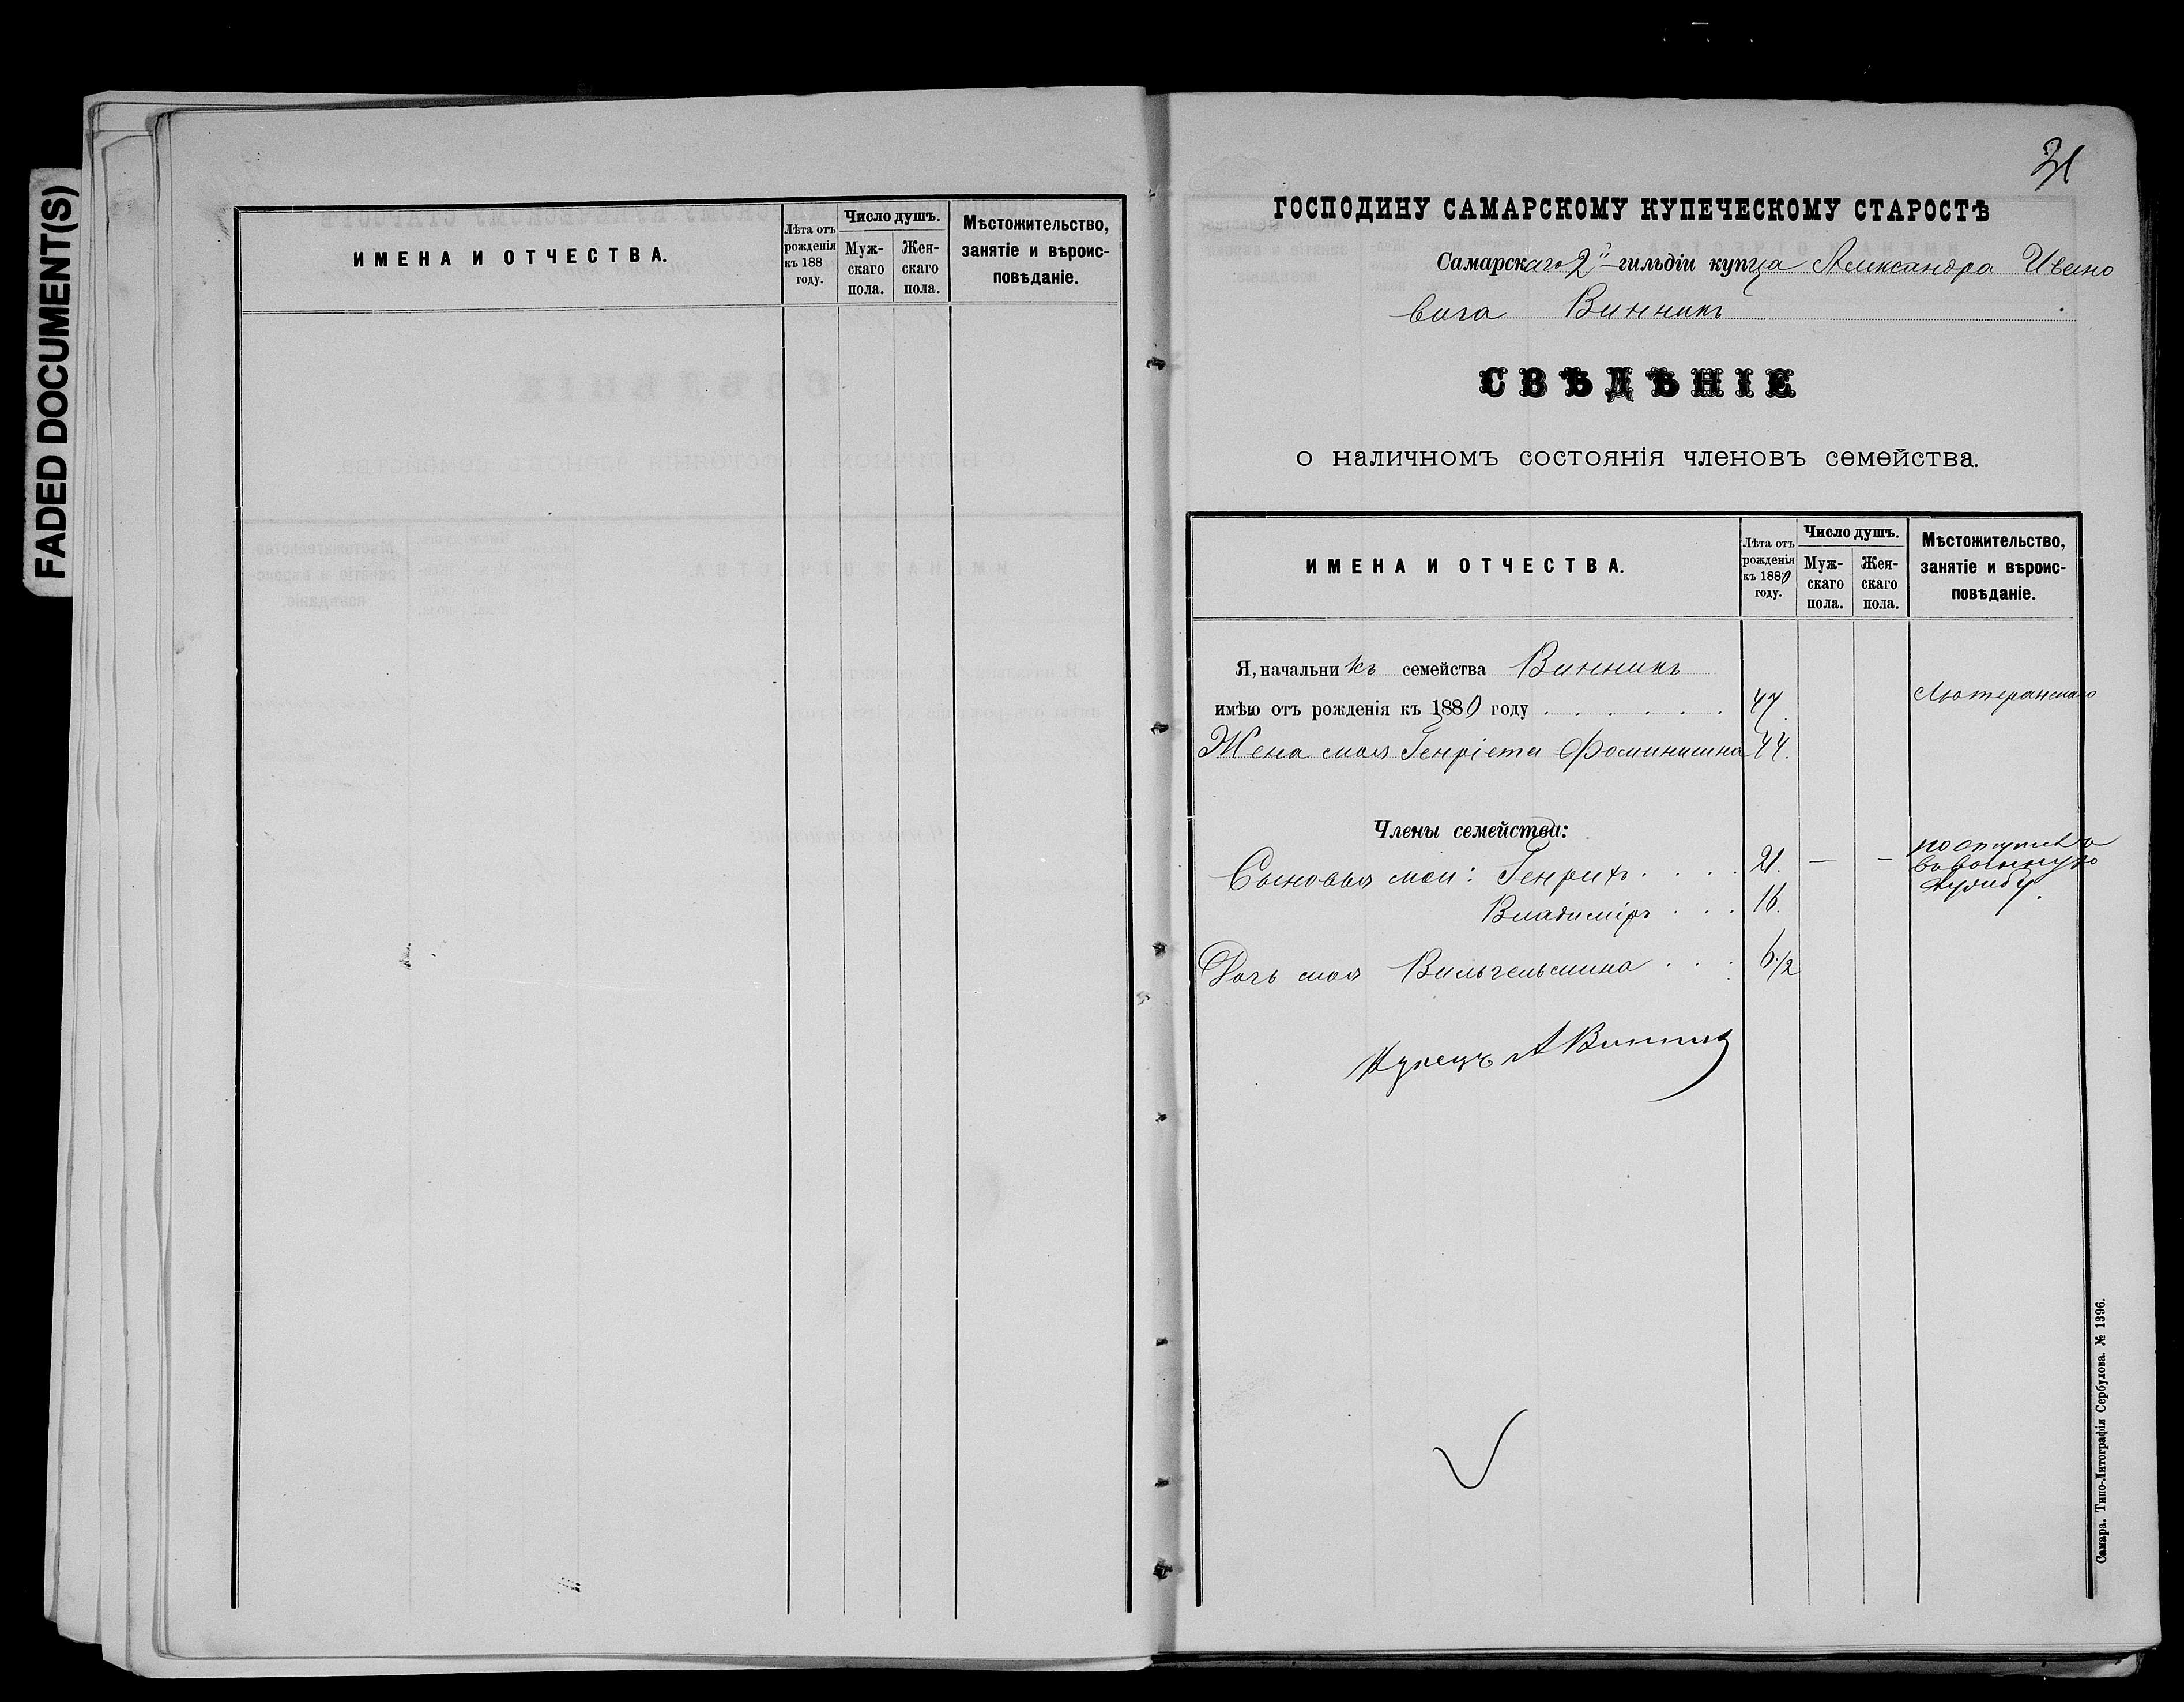 FADED DOCUMENT(S)
ИМЕНА И ОТЧЕСТВА.
Лѣта отъ рожденія къ 188 году.
Число душъ.
Мужскаго пола.
Женскаго пола.
Мѣстожительство, занятіе и вѣроисповѣданіе.
31
ГОСПОДИНУ САМАРСКОМУ КУПЕЧЕСКОМУ СТАРОСТѢ
Самарскаго 2й гильдіи купца Александра Ивано
вича Винникъ
СВѢДѢНІЕ
о наличномъ состоянія членовъ семейства.
ИМЕНА И ОТЧЕСТВА.
Лѣта отъ рожденія къ 1880 году.
Число душъ.
Мужскаго пола.
Женскаго пола.
Мѣстожительство, занятіе и вѣроисповѣданіе.
Я, начальникъ семейства Винникъ
имѣю отъ рожденія къ 1880 году . . . . . . 47. Лютеранскаго
Жена моя Генріета Фоминишна 44.
Члены семейства:
Сыновья мои: Генрихъ . . . . 21. — — поступилъ
въ военную
службу.
Владиміръ . . . 16.
Дочь моя Вильгельмина . . . 6 1/2
Купецъ А Винникъ
Самара. Типо-Литографія Сербулова. № 1396.